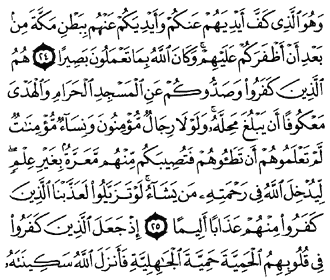 وَهُوَ ٱلَّذِي كَفَّ أَيۡدِيَهُمۡ عَنكُمۡ وَأَيۡدِيَكُمۡ عَنۡهُم بِبَطۡنِ مَكَّةَ مِنۢ
بَعۡدِ أَنۡ أَظۡفَرَكُمۡ عَلَيۡهِمۡۚ وَكَانَ ٱللَّهُ بِمَا تَعۡمَلُونَ بَصِيرًا ٢٤ هُمُ
ٱلَّذِينَ كَفَرُواْ وَصَدُّوكُمۡ عَنِ ٱلۡمَسۡجِدِ ٱلۡحَرَامِ وَٱلۡهَدۡيَ
مَعۡكُوفًا أَن يَبۡلُغَ مَحِلَّهُۥۚ وَلَوۡلَا رِجَالٞ مُّؤۡمِنُونَ وَنِسَآءٞ مُّؤۡمِنَٰتٞ
لَّمۡ تَعۡلَمُوهُمۡ أَن تَطَـُٔوهُمۡ فَتُصِيبَكُم مِّنۡهُم مَّعَرَّةُۢ بِغَيۡرِ عِلۡمٖۖ
لِّيُدۡخِلَ ٱللَّهُ فِي رَحۡمَتِهِۦ مَن يَشَآءُۚ لَوۡ تَزَيَّلُواْ لَعَذَّبۡنَا ٱلَّذِينَ
كَفَرُواْ مِنۡهُمۡ عَذَابًا أَلِيمًا ٢٥ إِذۡ جَعَلَ ٱلَّذِينَ كَفَرُواْ
فِي قُلُوبِهِمُ ٱلۡحَمِيَّةَ حَمِيَّةَ ٱلۡجَٰهِلِيَّةِ فَأَنزَلَ ٱللَّهُ سَكِينَتَهُۥ